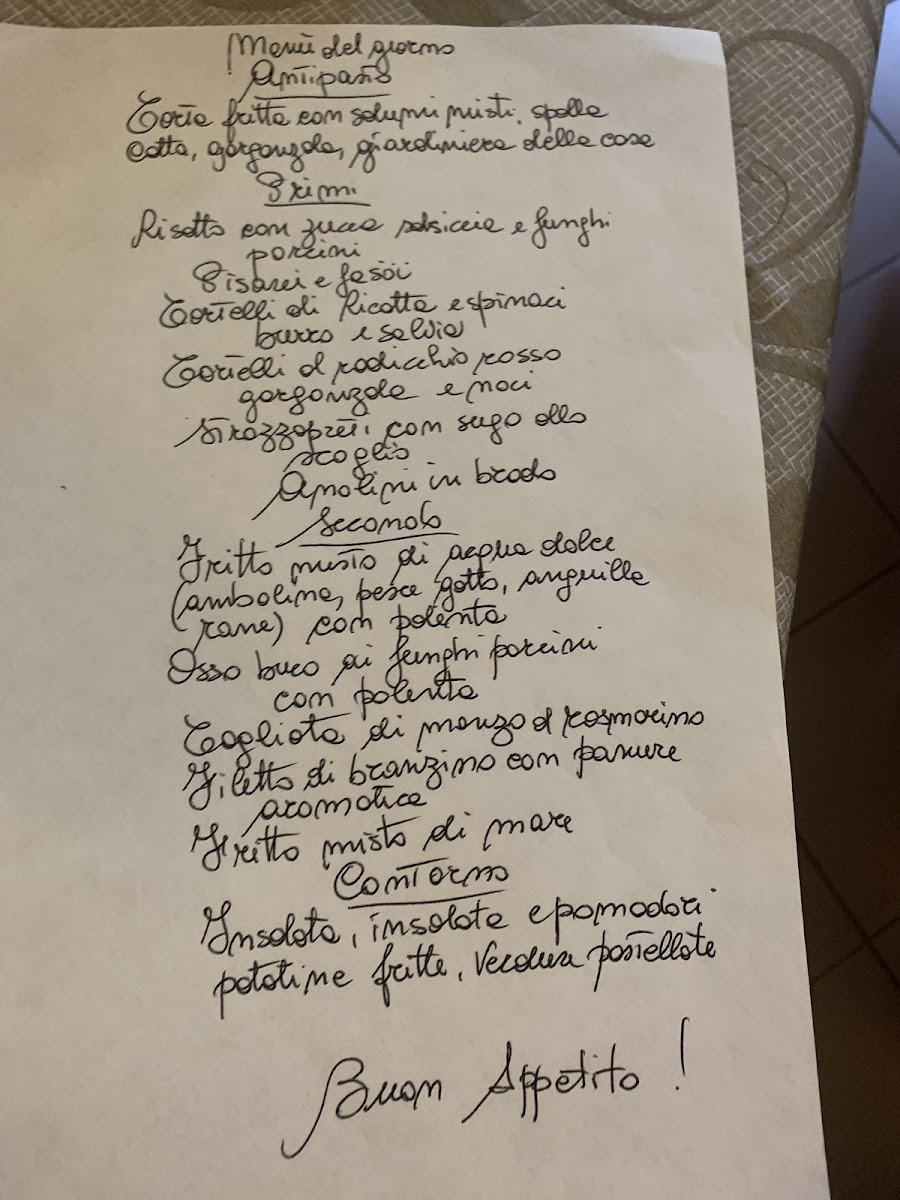 Menù del giorno
Antipasto
Torta fritta con salumi misti, spalla
cotta, gorgonzola, giardiniera della casa
Primi
Risotto con zucca salsiccia e funghi
porcini
Pisarei e fasöi
Tortelli di Ricotta e spinaci
burro e salvia
Tortelli al radicchio rosso
gorgonzola e noci
Strozzapreti con sugo allo
scoglio
Anolini in brodo
Secondo
Fritto misto di acqua dolce
(ambolina, pesce gatto, anguilla
rane) con polenta
Osso buco ai funghi porcini
con polenta
Tagliata di manzo al rosmarino
Filetto di branzino con panure
aromatica
Fritto misto di mare
Contorno
Insalata, insalata e pomodori
patatine fritte, Verdura pastellate
Buon Appetito !